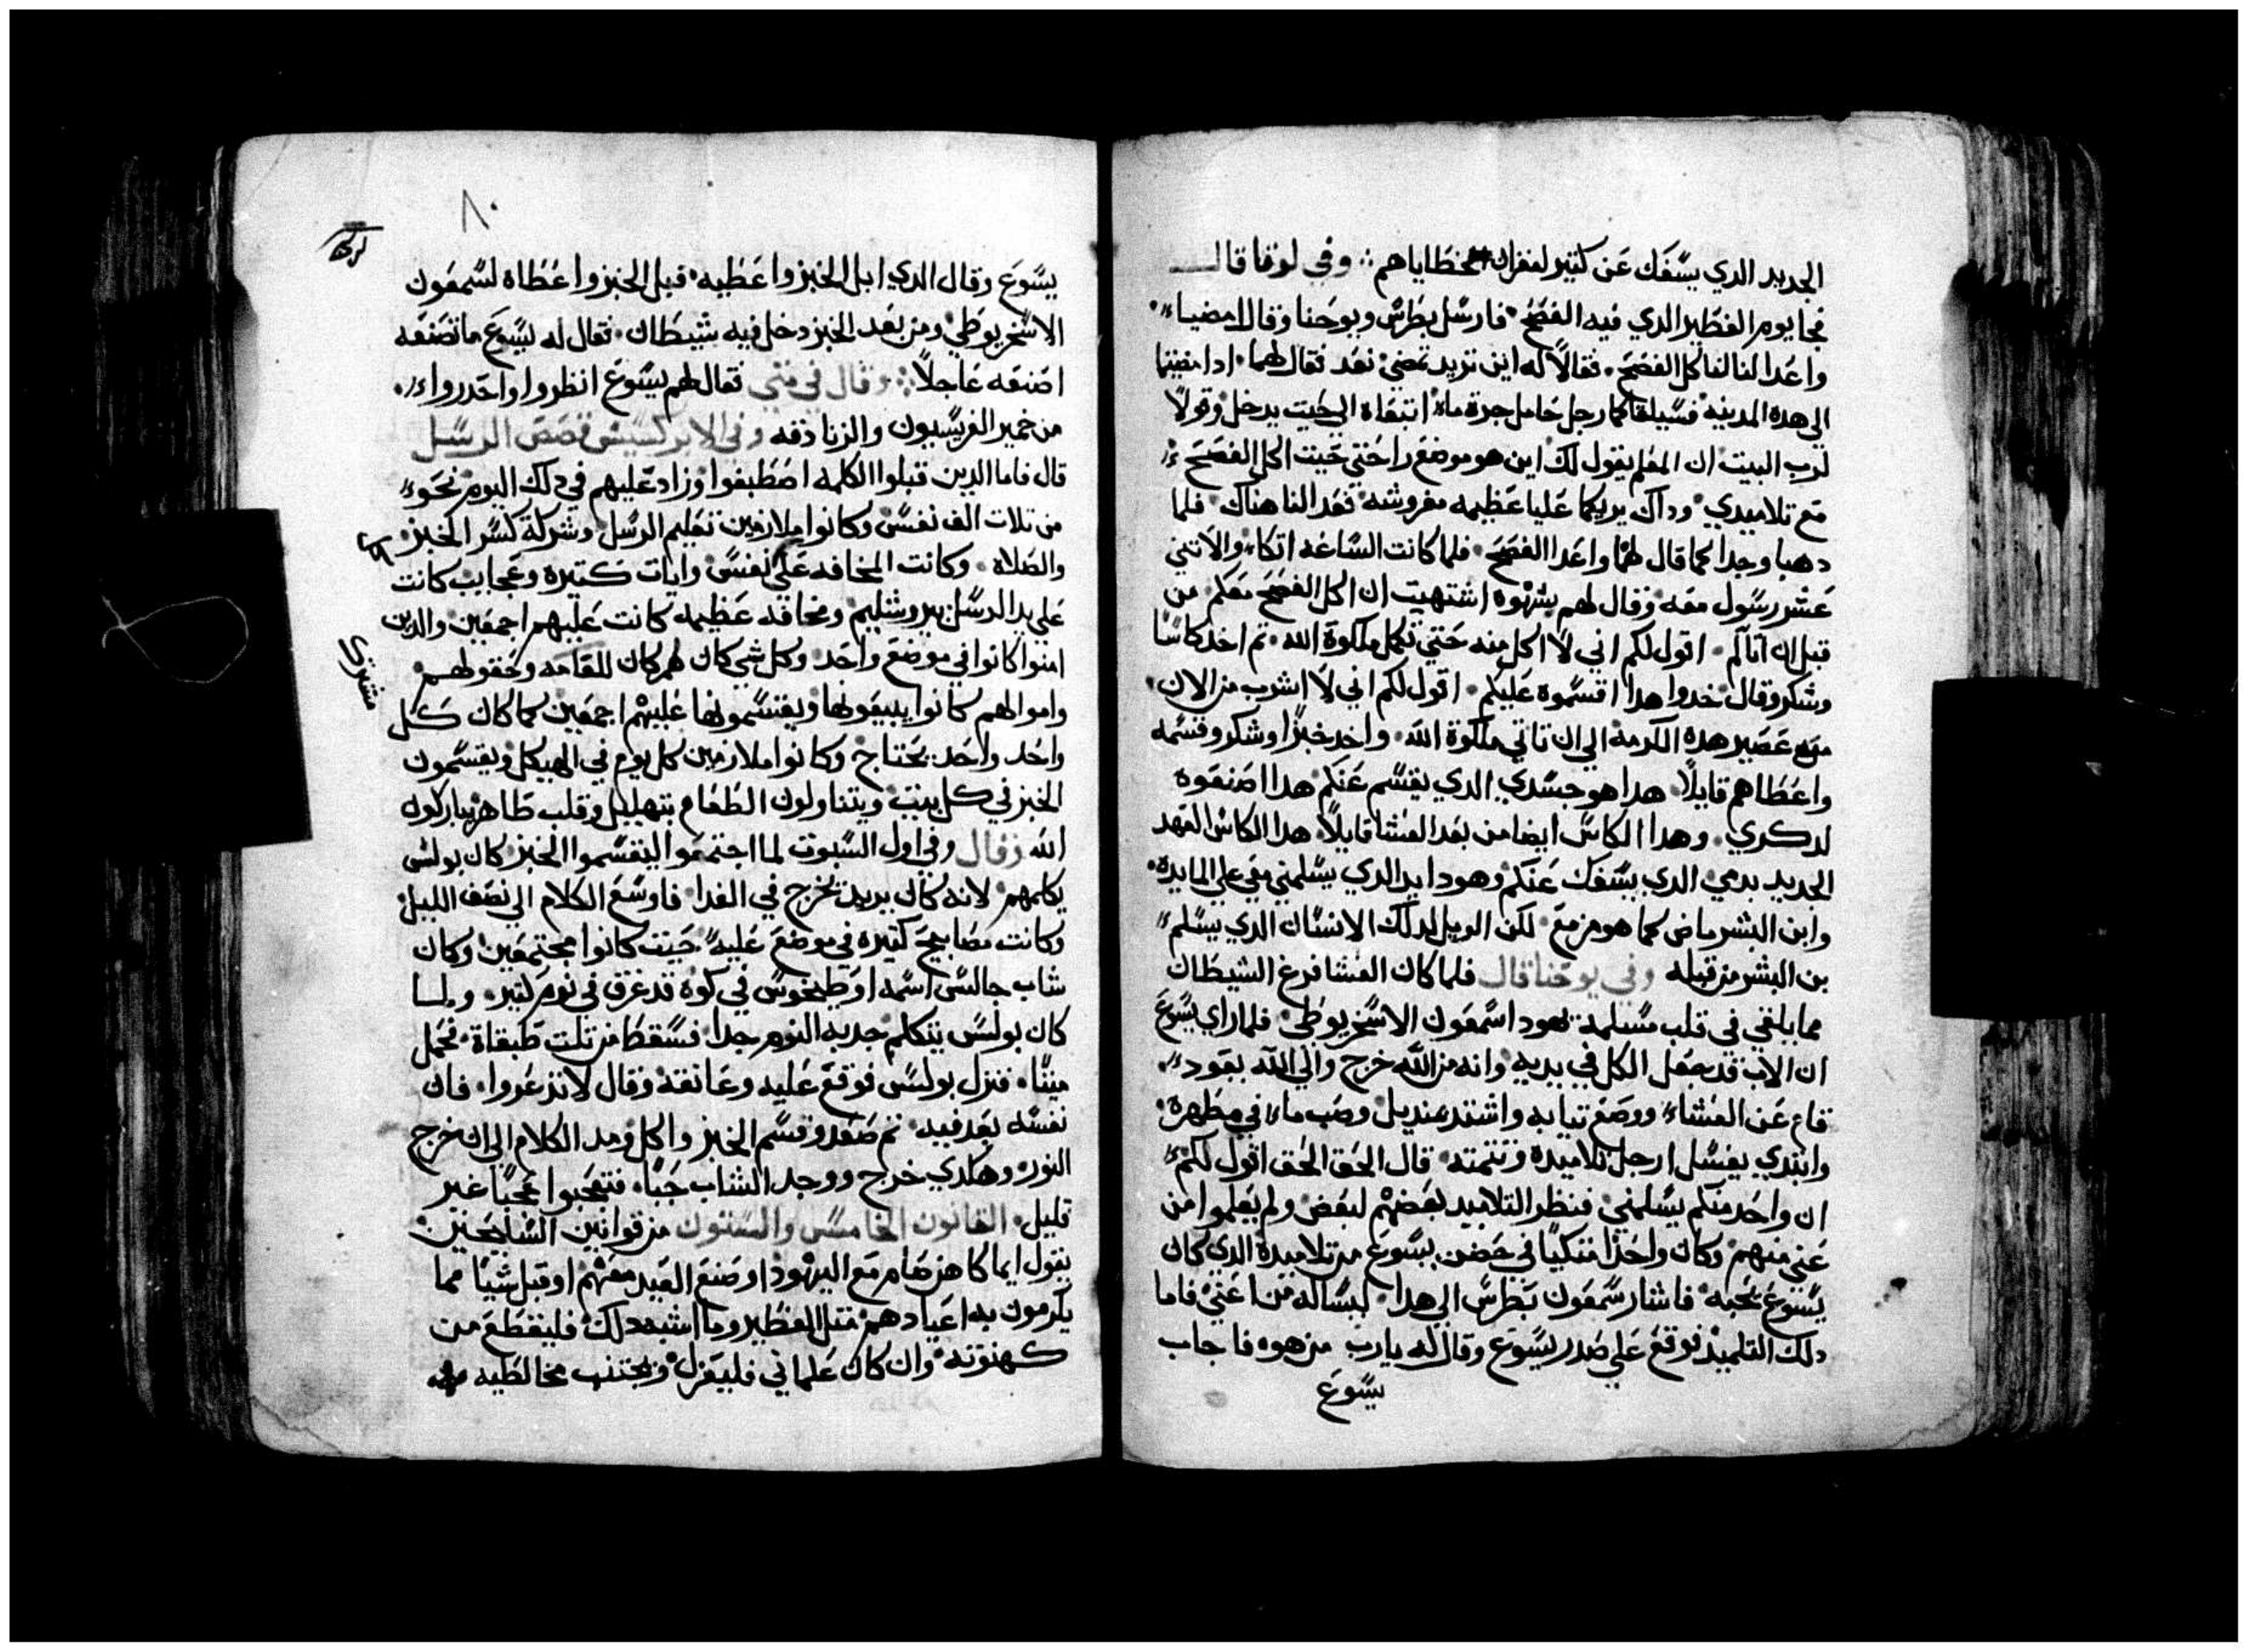 الجديد الدي يسفك عن كتير لغفران خطاياهم وفي لوقا قال
فجا يوم الفطير الدي فيه الفصح فارسل بطرس ويوحنا وقال امضيا
واعدا لنا لناكل الفصح فقالا له اين تريد تمضي نعد فقال لهما ادا مضيتما
الي هده المدينه فسيلقاكما رجل حامل جرة ماء اتبعاه الي حيت يدخل وقولا
لرب البيت ان المعلم يقول لك اين هو موضع راحتي حيت اكل الفصح
مع تلاميدي وداك يريكما عليا عظيمه مفروشه فعدا لنا هناك فلما
دهبا وجدا كما قال لهما واعدا الفصح فلما كانت الساعه اتكا والاتني
عشر رسول معه وقال لهم بشهوه اشتهيت ان اكل الفصح معكم من
قبل ان اتالم اقول لكم اني لا اكل منه حتي تكمل ملكوة الله تم اخد كاسا
وشكر وقال خدوا هدا اقسموه عليكم اقول لكم اني لا اشرب من الان
من عصير هده الكرمة الي ان تاتي ملكوة الله واخد خبزا وشكر وقسمه
واعطاهم قايلا هدا هو جسدي الدي يقسم عنكم هدا اصنعوه
لدكري وهدا الكاس ايضا من بعد العشا قايلا هدا الكاس العهد
الجديد بدمي الدي يسفك عنكم وهودا يد الدي يسلمني معي علي المايده
وابن البشر ماض كما هو مزمع لكن الويل لدلك الانسان الدي يسلم
بن البشر من قبله وفي يوحنا قال فلما كان العشا فرغ الشيطان
مما يلقي في قلب مسلمه يهودا سمعون الاسخريوطي فلما راي يسوع
ان الاب قد جعل الكل في يديه وانه من الله خرج والي الله يعود
قام عن العشاء ووضع تيابه واشتد بمنديل وصب ماء في مطهرة
وابتدي يغسل ارجل تلاميده وتتمته قال الحق الحق اقول لكم
ان واحد منكم يسلمني فنظر التلاميد بعضهم لبعض ولم يعلموا من
عني منهم وكان واحدا متكيا في حضن يسوع من تلاميده الدي كان
يسوع يحبه فاشار سمعون بطرس الي هدا ليساله من اعني فاما
دلك التلميد فوقع علي صدر يسوع وقال له يارب من هو فاجاب
يسوع
٨٠
يسوع وقال الدي ابل الخبز واعطيه فبل الخبز واعطاه لسمعون
الاسخريوطي ومن بعد الخبز دخل فيه شيطان فقال له يسوع ما تصنعه
اصنعه عاجلا وقال في متي فقال لهم يسوع انظروا واحدروا
من خمير الفريسيون والزنادقه وفي الابركسيس قصص الرسل
قال فاما الدين قبلوا الكلمه اصطبغوا وزاد عليهم في دلك اليوم نحو
من تلات الف نفس وكانوا ملازمين تعليم الرسل وشركة كسر الخبز
والصلاه وكانت المخافه علي نفس وايات كتيره وعجايب كانت
علي يد الرسل بيروشليم ومخافه عظيمه كانت عليهم اجمعين والدين
امنوا كانوا في موضع واحد وكل شي كان لهم كان للعامه وحقولهم
واموالهم كانوا يبيعونها ويقتسمونها عليهم اجمعين كما كان كل
واحد واحد يحتاج وكانوا ملازمين كل يوم في الهيكل ويقسمون
الخبز في كل بيت ويتناولون الطعام بتهليل وقلب طاهر يباركون
الله وقال وفي اول السبوت لما اجتمعوا ليقسموا الخبز كان بولس
يكلمهم لانه كان يريد يخرج في الغدا فاوسع الكلام الي نصف الليل
وكانت مصابيح كتيره في موضع عليه حيت كانوا مجتمعين وكان
شاب جالس اسمه اوطيخوس في كوه قد غرق في نوم كتير ولما
كان بولس يتكلم جدبه النوم جدا فسقط من تلت طبقاة فحمل
ميتا فنزل بولس فوقع عليه وعانقه وقال لا تدعروا فان
نفسه بعد فيه تم صعد وقسم الخبز واكل ومد الكلام الي ان خرج
النور وهكدي خرج ووجد الشاب حيا فتعجبوا عجبا غير
قليل القانون الخامس والستون من قوانين السايحين
يقول ايما كاهن صام مع اليهود او صنع العيد معهم او قبل شيا مما
يكرمون به اعيادهم متل الفطير وما اشبه دلك فليقطع من
كهنوته وان كان علماني فليعزل ويجتنب مخالطيه